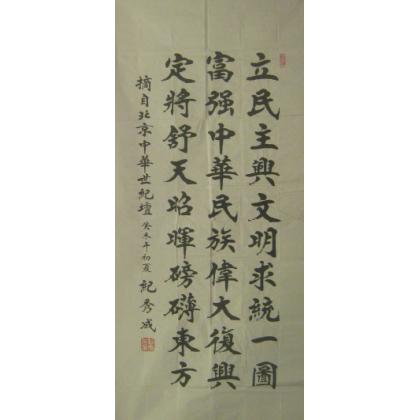 立民主興文明求統一圖
富强中華民族偉大復興
定將舒天昭暉磅礴東方
摘自北京中華世紀壇 癸未年初夏 紀秀成